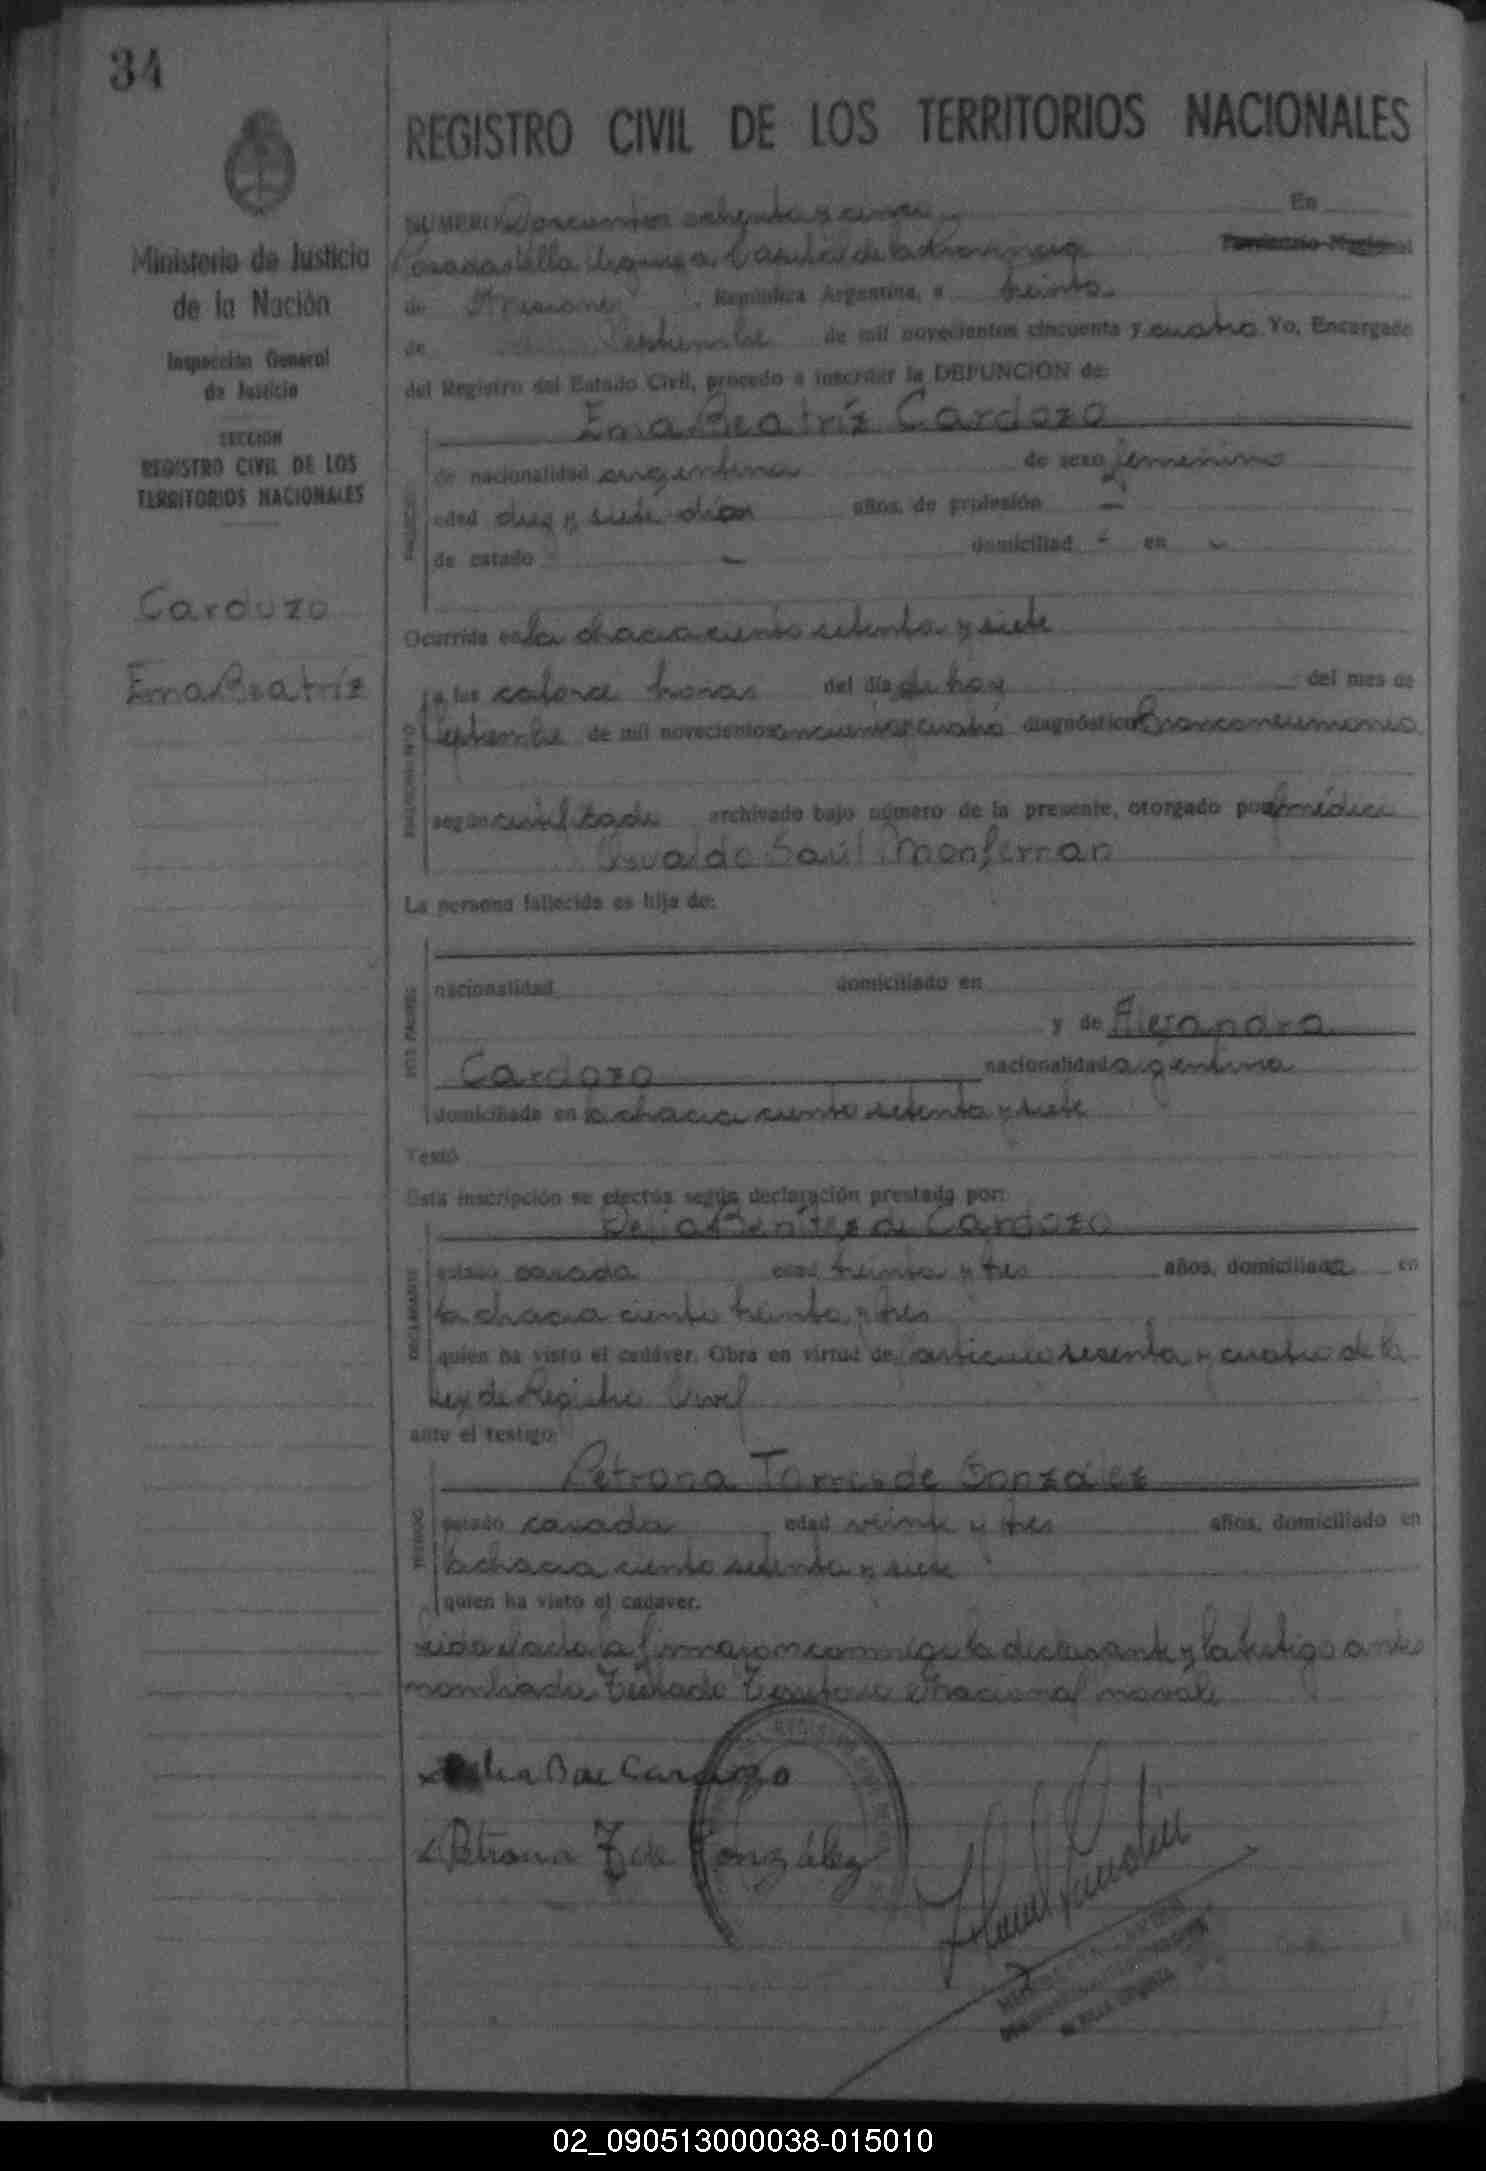 34
REGISTRO CIVIL DE LOS TERRITORIOS NACIONALES
Ministerio de Justicia
de la Nación
Inspección General
de Justicia
SECCION
REGISTRO CIVIL DE LOS
TERRITORIOS NACIONALES
Cardozo
Ema Beatríz
NUMERO Doscientos ochenta y cinco En
Posadas Villa Urquiza Capital de la Provincia Territorio Nacional
de Misiones, República Argentina, a treinta
de Septiembre de mil novecientos cincuenta y cuatro Yo, Encargado
del Registro del Estado Civil, procedo a inscribir la DEFUNCION de:
Ema Beatríz Cardozo
de nacionalidad argentina de sexo femenino
edad diez y siete días años, de profesión —
de estado — domiciliad - en -
Ocurrida en la chacra ciento setenta y siete
a las catorce horas del día de hoy del mes de
Septiembre de mil novecientos cincuenta y cuatro diagnóstico Bronconeumonía
según certificado archivado bajo número de la presente, otorgado por el médico
Osvaldo Saúl Monferran
La persona fallecida es hija de:
SUS PADRES
nacionalidad domiciliado en
y de Alejandra
Cardozo nacionalidad argentina
domiciliada en la chacra ciento setenta y siete
Testó
Esta inscripción se efectúa según declaración prestada por:
Delia Benítez de Cardozo
DECLARANTE
estado casada edad treinta y tres años, domiciliada en
la chacra ciento treinta y tres
quien ha visto el cadáver. Obra en virtud de artículo sesenta y cuatro de la
Ley de Registro Civil
ante el testigo:
Petrona Torres de González
TESTIGO
estado casada edad veinte y tres años, domiciliado en
la chacra ciento setenta y siete
quien ha visto el cadaver.
Leida el acta la firmaron conmigo la declarante y la testigo antes
nombrada Testado Territorio Nacional no vale
Delia B de Cardozo
Petrona T de González
02_090513000038-015010